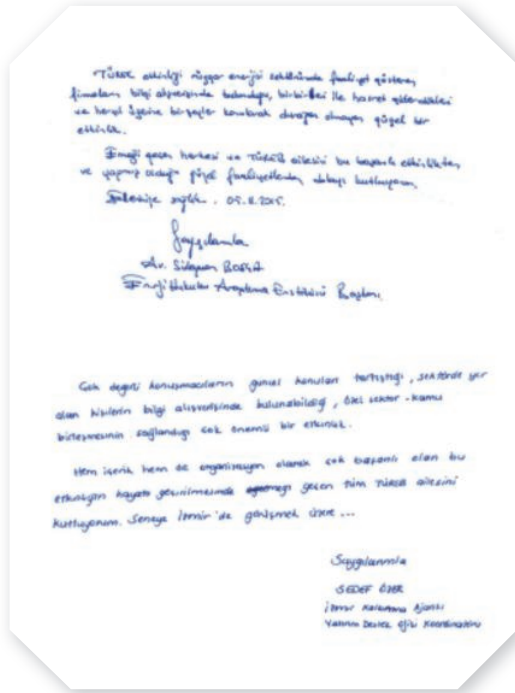 TÜREK etkinliği rüzgar enerjisi sektöründe faaliyet gösteren
firmaların bilgi alışverişinde bulunduğu, birbirleri ile hasret giderdikleri
ve herşeyi üzerine birşeyler olmayan güzel bir
etkinlik.
Emeği geçen herkesi ve TÜREB ailesini bu başarılı etkinlikten
ve yapmış olduğu güzel faaliyetlerden dolayı kutluyorum.
sağlık. 05.11.2015.
Saygılarımla
Av. Süleyman BOŞÇA
Enerji Hukuku Araştırma Enstitüsü Başkanı
Çok değerli konuşmacıların güncel konuları tartıştığı, sektörde yer
alan kişilerin bilgi alışverişinde bulunabildiği, özel sektör-kamu
birleşmesinin sağlandığı çok önemli bir etkinlik.
Hem içerik hem de organizasyon olarak çok başarılı olan bu
etkinliğin hayata geçirilmesinde emeği geçen tüm TÜREB ailesini
kutluyorum. Seneye İzmir'de görüşmek üzere...
Saygılarımla
SEDEF ÖZER
İzmir Kalkınma Ajansı
Yatırım Destek Ofisi Koordinatörü